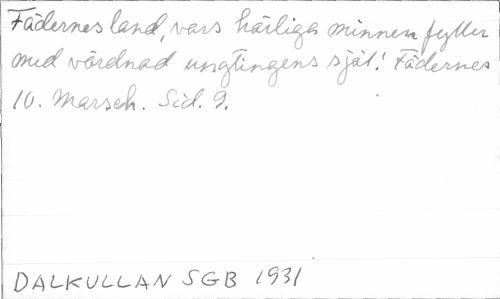 Fädernesland, vars härliga minnen fyller
med vördnad ynglingens själ! Fädernes
10. Marsch. Sid. 9.
DALKULLAN SGB 1931